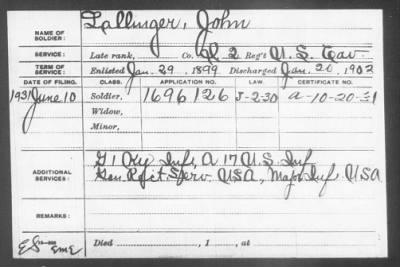 NAME OF SOLDIER: Lallinger, John
SERVICE: Late rank, Co. 2 Reg't U.S. Cav.
TERM OF SERVICE: Enlisted Jan. 29, 1899 Discharged Jan. 20, 1902
DATE OF FILING. CLASS. APPLICATION NO. CERTIFICATE NO.
1931 June 10 Soldier, 1696126 J-2-30 A-10-20-31
Widow,
Minor,
ADDITIONAL SERVICES: G 1 Ky Inf, A 17 U.S. Inf
Gen. Rcr't. Serv. USA, Major Inf USA
REMARKS:
Died , 1 , at